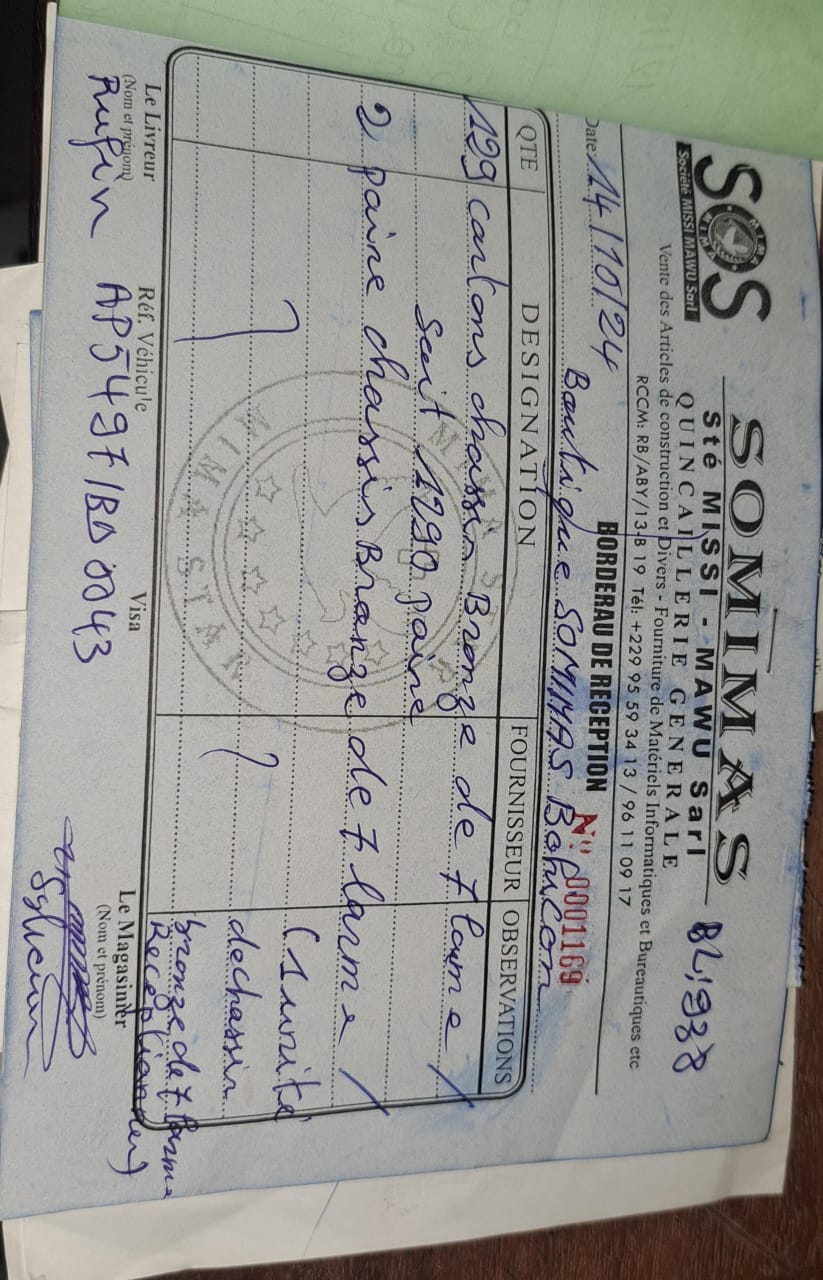 SOMIMAS
SOS
Société MISSI MAWU Sarl
Sté MISSI - MAWU Sarl
BL:1938
QUINCAILLERIE GENERALE
Vente des Articles de construction et Divers - Fourniture de Matériels Informatiques et Bureautiques etc
RCCM: RB/ABY/13-B 19 Tél: +229 95 59 34 13 / 96 11 09 17
BORDERAU DE RECEPTION N° 0001169
Date 14/10/24 Boutique SOMIMAS Bohicon
QTE DESIGNATION FOURNISSEUR OBSERVATIONS
129 cartons chassis Bronze de 7 lame /
Soit 1290 paire
2 paire chassis Bronze de 7 larme /
(1 unité
de chassis
bronze de 7 larme
Receptionner)
MIMA STAR
Le Livreur
(Nom et prénom)
Réf. Véhicule
Visa
Le Magasinier
(Nom et prénom)
Rufin AP5497/BD0043